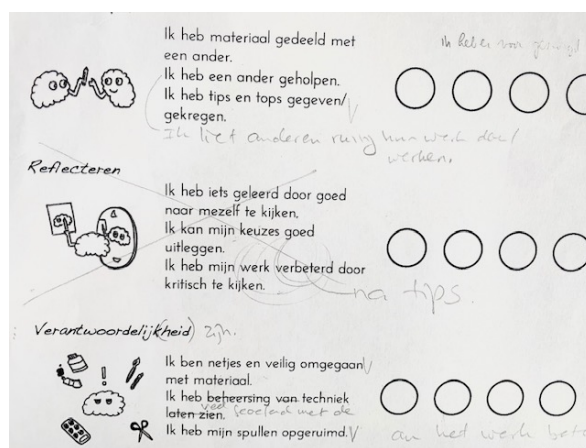 Ik heb materiaal gedeeld met
een ander.
Ik heb een ander geholpen.
Ik heb tips en tops gegeven/
gekregen.
Ik liet anderen rustig hun werk
werken.
Reflecteren
Ik heb iets geleerd door goed
naar mezelf te kijken.
Ik kan mijn keuzes goed
uitleggen.
Ik heb mijn werk verbeterd door
kritisch te kijken.
na tips.
Verantwoordelijk(heid) zijn.
Ik ben netjes en veilig omgegaan
met materiaal.
Ik heb beheersing van techniek
laten zien.
met de
Ik heb mijn spullen opgeruimd.
aan het werk